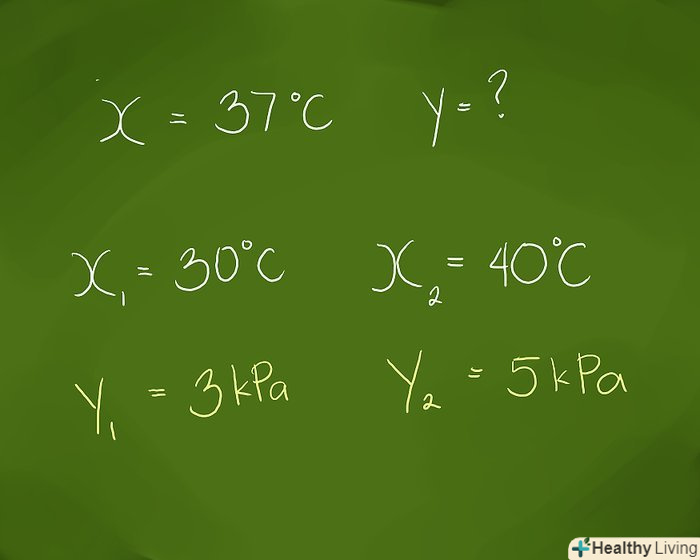 x = 37°C y = ?
x₁ = 30°C x₂ = 40°C
y₁ = 3 kPa y₂ = 5 kPa
Healthy Living